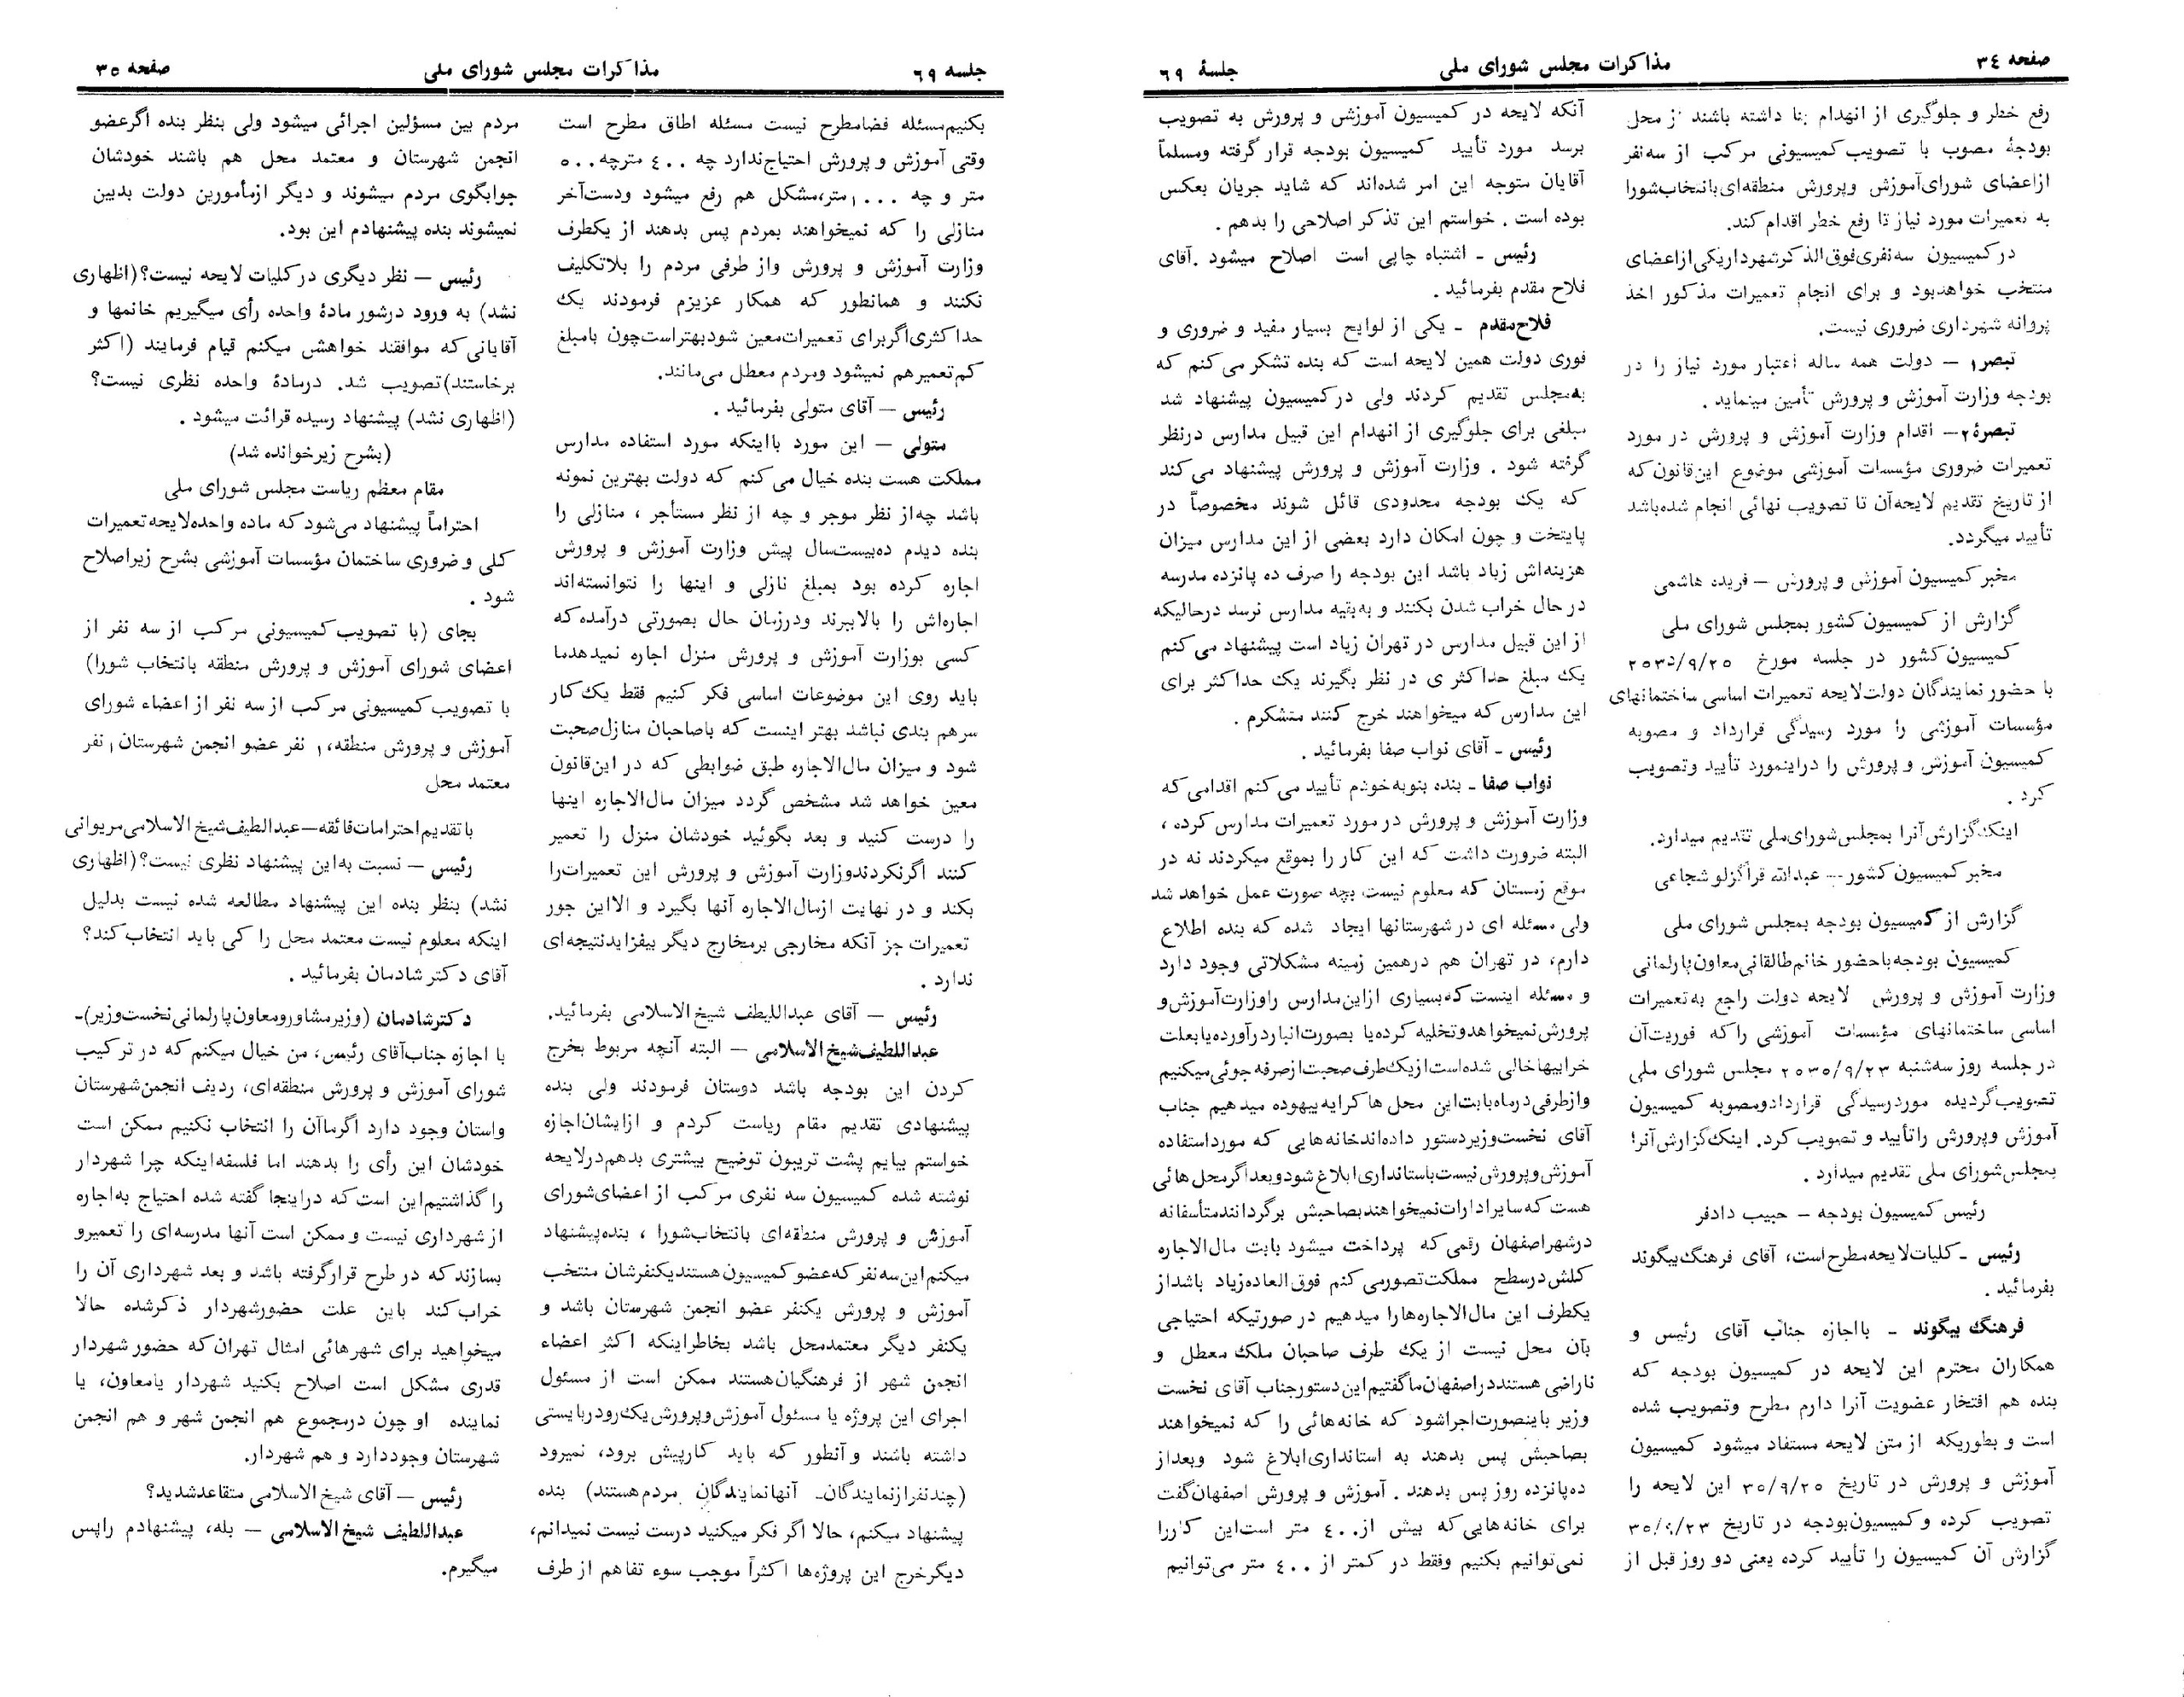 صفحه ۳٤
مذاکرات مجلس شورای ملی
جلسهٔ ۶۹
رفع خطر و جلوگیری از انهدام بنا داشته باشند از محل
بودجهٔ مصوب با تصویب کمیسیونی مرکب از سه‌نفر
از اعضای شورای آموزش و پرورش منطقه‌ای با انتخاب شورا
به تعمیرات مورد نیاز تا رفع خطر اقدام کند.
در کمیسیون سه نفری فوق‌الذکر شهردار یکی از اعضای
منتخب خواهد بود و برای انجام تعمیرات مذکور اخذ
پروانه شهرداری ضروری نیست.
تبصره۱ — دولت همه ساله اعتبار مورد نیاز را در
بودجه وزارت آموزش و پرورش تأمین مینماید .
تبصرهٔ۲— اقدام وزارت آموزش و پرورش در مورد
تعمیرات ضروری مؤسسات آموزشی موضوع این قانون که
از تاریخ تقدیم لایحه آن تا تصویب نهائی انجام شده باشد
تأیید میگردد.
مخبر کمیسیون آموزش و پرورش — فریده هاشمی
گزارش از کمیسیون کشور بمجلس شورای ملی
کمیسیون کشور در جلسه مورخ ۲۰۳۵/۹/۲۵
با حضور نمایندگان دولت لایحه تعمیرات اساسی ساختمانهای
مؤسسات آموزشی را مورد رسیدگی قرار داد و مصوبه
کمیسیون آموزش و پرورش را در اینمورد تأیید و تصویب
کرد .
اینک گزارش آنرا بمجلس شورای ملی تقدیم میدارد.
مخبر کمیسیون کشور — عبدالله قراگزلو شجاعی
گزارش از کمیسیون بودجه بمجلس شورای ملی
کمیسیون بودجه با حضور خانم طالقانی معاون پارلمانی
وزارت آموزش و پرورش لایحه دولت راجع به تعمیرات
اساسی ساختمانهای مؤسسات آموزشی را که فوریت آن
در جلسه روز سه‌شنبه ۲۰۳۵/۹/۲۳ مجلس شورای ملی
تصویب گردیده مورد رسیدگی قرار داد و مصوبه کمیسیون
آموزش و پرورش را تأیید و تصویب کرد. اینک گزارش آنرا
بمجلس شورای ملی تقدیم میدارد .
رئیس کمیسیون بودجه — حبیب دادفر
رئیس - کلیات لایحه مطرح است، آقای فرهنگ بیگوند
بفرمائید .
فرهنگ بیگوند - با اجازه جناب آقای رئیس و
همکاران محترم این لایحه در کمیسیون بودجه که
بنده هم افتخار عضویت آنرا دارم مطرح و تصویب شده
است و بطوریکه از متن لایحه مستفاد میشود کمیسیون
آموزش و پرورش در تاریخ ۳۵/۹/۲۵ این لایحه را
تصویب کرده و کمیسیون بودجه در تاریخ ۳۵/۹/۲۳
گزارش آن کمیسیون را تأیید کرده یعنی دو روز قبل از
آنکه لایحه در کمیسیون آموزش و پرورش به تصویب
برسد مورد تأیید کمیسیون بودجه قرار گرفته و مسلماً
آقایان متوجه این امر شده‌اند که شاید جریان بعکس
بوده است . خواستم این تذکر اصلاحی را بدهم .
رئیس - اشتباه چاپی است اصلاح میشود .آقای
فلاح مقدم بفرمائید .
فلاح‌مقدم - یکی از لوایح بسیار مفید و ضروری و
فوری دولت همین لایحه است که بنده تشکر می کنم که
به‌مجلس تقدیم کردند ولی در کمیسیون پیشنهاد شد
مبلغی برای جلوگیری از انهدام این قبیل مدارس درنظر
گرفته شود . وزارت آموزش و پرورش پیشنهاد می کند
که یک بودجه محدودی قائل شوند مخصوصاً در
پایتخت و چون امکان دارد بعضی از این مدارس میزان
هزینه‌اش زیاد باشد این بودجه را صرف ده پانزده مدرسه
در حال خراب شدن بکنند و به بقیه مدارس نرسد درحالیکه
از این قبیل مدارس در تهران زیاد است پیشنهاد می کنم
یک مبلغ حداکثر ی در نظر بگیرند یک حداکثر برای
این مدارس که میخواهند خرج کنند متشکرم .
رئیس - آقای نواب صفا بفرمائید .
نواب صفا - بنده بنوبه خودم تأیید می کنم اقدامی که
وزارت آموزش و پرورش در مورد تعمیرات مدارس کرده ،
البته ضرورت داشت که این کار را بموقع میکردند نه در
موقع زمستان که معلوم نیست بچه صورت عمل خواهد شد
ولی مسئله ای در شهرستانها ایجاد شده که بنده اطلاع
دارم، در تهران هم درهمین زمینه مشکلاتی وجود دارد
و مسئله اینست که بسیاری از این مدارس را وزارت آموزش و
پرورش نمیخواهد و تخلیه کرده یا بصورت انبار درآورده یا بعلت
خرابیها خالی شده است از یک طرف صحبت از صرفه جوئی میکنیم
و از طرفی در ماه بابت این محل ها کرایه بیهوده میدهیم جناب
آقای نخست وزیر دستور داده‌اند خانه هایی که مورد استفاده
آموزش و پرورش نیست باستانداری ابلاغ شود و بعد اگر محل هائی
هست که سایر ادارات نمیخواهند بصاحبش برگردانند متأسفانه
در شهر اصفهان رقمی که پرداخت میشود بابت مال‌الاجاره
کلش در سطح مملکت تصور می کنم فوق‌العاده زیاد باشد از
یکطرف این مال‌الاجاره‌ها را میدهیم در صورتیکه احتیاجی
بآن محل نیست از یک طرف صاحبان ملک معطل و
ناراضی هستند در اصفهان ما گفتیم این دستور جناب آقای نخست
وزیر باینصورت اجرا شود که خانه هائی را که نمیخواهند
بصاحبش پس بدهند به استانداری ابلاغ شود و بعد از
ده پانزده روز پس بدهند . آموزش و پرورش اصفهان گفت
برای خانه هایی که بیش از ٤۰۰ متر است این کار را
نمی توانیم بکنیم و فقط در کمتر از ٤۰۰ متر می توانیم
جلسه ۶۹
مذاکرات مجلس شورای ملی
صفحه ۳۵
بکنیم مسئله فضا مطرح نیست مسئله اطاق مطرح است
وقتی آموزش و پرورش احتیاج ندارد چه ٤۰۰ متر چه ۵۰۰
متر و چه ۱۰۰۰ متر، مشکل هم رفع میشود و دست آخر
منازلی را که نمیخواهند بمردم پس بدهند از یکطرف
وزارت آموزش و پرورش و از طرفی مردم را بلاتکلیف
نکنند و همانطور که همکار عزیزم فرمودند یک
حداکثری اگر برای تعمیرات معین شود بهتر است چون با مبلغ
کم تعمیر هم نمیشود و مردم معطل می‌مانند.
رئیس — آقای متولی بفرمائید .
متولی — این مورد با اینکه مورد استفاده مدارس
مملکت هست بنده خیال می کنم که دولت بهترین نمونه
باشد چه از نظر موجر و چه از نظر مستأجر ، منازلی را
بنده دیدم ده بیست سال پیش وزارت آموزش و پرورش
اجاره کرده بود بمبلغ نازلی و اینها را نتوانسته‌اند
اجاره‌اش را بالاببرند و در زمان حال بصورتی درآمده که
کسی بوزارت آموزش و پرورش منزل اجاره نمیدهد ما
باید روی این موضوعات اساسی فکر کنیم فقط یک کار
سرهم بندی نباشد بهتر اینست که با صاحبان منازل صحبت
شود و میزان مال‌الاجاره طبق ضوابطی که در این قانون
معین خواهد شد مشخص گردد میزان مال‌الاجاره اینها
را درست کنید و بعد بگوئید خودشان منزل را تعمیر
کنند اگر نکردند وزارت آموزش و پرورش این تعمیرات را
بکند و در نهایت از مال‌الاجاره آنها بگیرد و الا این جور
تعمیرات جز آنکه مخارجی بر مخارج دیگر بیفزاید نتیجه‌ای
ندارد .
رئیس — آقای عبداللطیف شیخ الاسلامی بفرمائید.
عبداللطیف شیخ الاسلامی — البته آنچه مربوط بخرج
کردن این بودجه باشد دوستان فرمودند ولی بنده
پیشنهادی تقدیم مقام ریاست کردم و از ایشان اجازه
خواستم بیایم پشت تریبون توضیح بیشتری بدهم در لایحه
نوشته شده کمیسیون سه نفری مرکب از اعضای شورای
آموزش و پرورش منطقه‌ای با انتخاب شورا ، بنده پیشنهاد
میکنم این سه نفر که عضو کمیسیون هستند یکنفرشان منتخب
آموزش و پرورش یکنفر عضو انجمن شهرستان باشد و
یکنفر دیگر معتمد محل باشد بخاطر اینکه اکثر اعضاء
انجمن شهر از فرهنگیان هستند ممکن است از مسئول
اجرای این پروژه یا مسئول آموزش و پرورش یک رودربایستی
داشته باشند و آنطور که باید کار پیش برود، نمیرود
(چند نفر از نمایندگان- آنها نمایندگان مردم هستند) بنده
پیشنهاد میکنم، حالا اگر فکر میکنید درست نیست نمیدانم،
دیگر خرج این پروژه‌ها اکثراً موجب سوء تفاهم از طرف
مردم بین مسؤلین اجرائی میشود ولی بنظر بنده اگر عضو
انجمن شهرستان و معتمد محل هم باشند خودشان
جوابگوی مردم میشوند و دیگر از مأمورین دولت بدبین
نمیشوند بنده پیشنهادم این بود.
رئیس — نظر دیگری در کلیات لایحه نیست؟ (اظهاری
نشد) به ورود در شور مادهٔ واحده رأی میگیریم خانمها و
آقایانی که موافقند خواهش میکنم قیام فرمایند (اکثر
برخاستند) تصویب شد. در مادهٔ واحده نظری نیست؟
(اظهاری نشد) پیشنهاد رسیده قرائت میشود .
(بشرح زیر خوانده شد)
مقام معظم ریاست مجلس شورای ملی
احتراماً پیشنهاد می شود که ماده واحده لایحه تعمیرات
کلی و ضروری ساختمان مؤسسات آموزشی بشرح زیر اصلاح
شود .
بجای (با تصویب کمیسیونی مرکب از سه نفر از
اعضای شورای آموزش و پرورش منطقه با انتخاب شورا)
با تصویب کمیسیونی مرکب از سه نفر از اعضاء شورای
آموزش و پرورش منطقه، ۱ نفر عضو انجمن شهرستان ۱ نفر
معتمد محل
با تقدیم احترامات فائقه — عبدالطیف شیخ الاسلامی مریوانی
رئیس — نسبت به این پیشنهاد نظری نیست؟ (اظهاری
نشد) بنظر بنده این پیشنهاد مطالعه شده نیست بدلیل
اینکه معلوم نیست معتمد محل را کی باید انتخاب کند؟
آقای دکتر شادمان بفرمائید .
دکتر شادمان (وزیر مشاور و معاون پارلمانی نخست وزیر)-
با اجازه جناب آقای رئیس، من خیال میکنم که در ترکیب
شورای آموزش و پرورش منطقه‌ای، ردیف انجمن شهرستان
و استان وجود دارد اگر ما آن را انتخاب نکنیم ممکن است
خودشان این رأی را بدهند اما فلسفه اینکه چرا شهردار
را گذاشتیم این است که در اینجا گفته شده احتیاج به اجاره
از شهرداری نیست و ممکن است آنها مدرسه‌ای را تعمیر و
بسازند که در طرح قرار گرفته باشد و بعد شهرداری آن را
خراب کند باین علت حضور شهردار ذکر شده حالا
میخواهید برای شهرهائی امثال تهران که حضور شهردار
قدری مشکل است اصلاح بکنید شهردار یا معاون، یا
نماینده او چون در مجموع هم انجمن شهر و هم انجمن
شهرستان وجود دارد و هم شهردار.
رئیس — آقای شیخ الاسلامی متقاعد شدید؟
عبداللطیف شیخ الاسلامی — بله، پیشنهادم را پس
میگیرم.